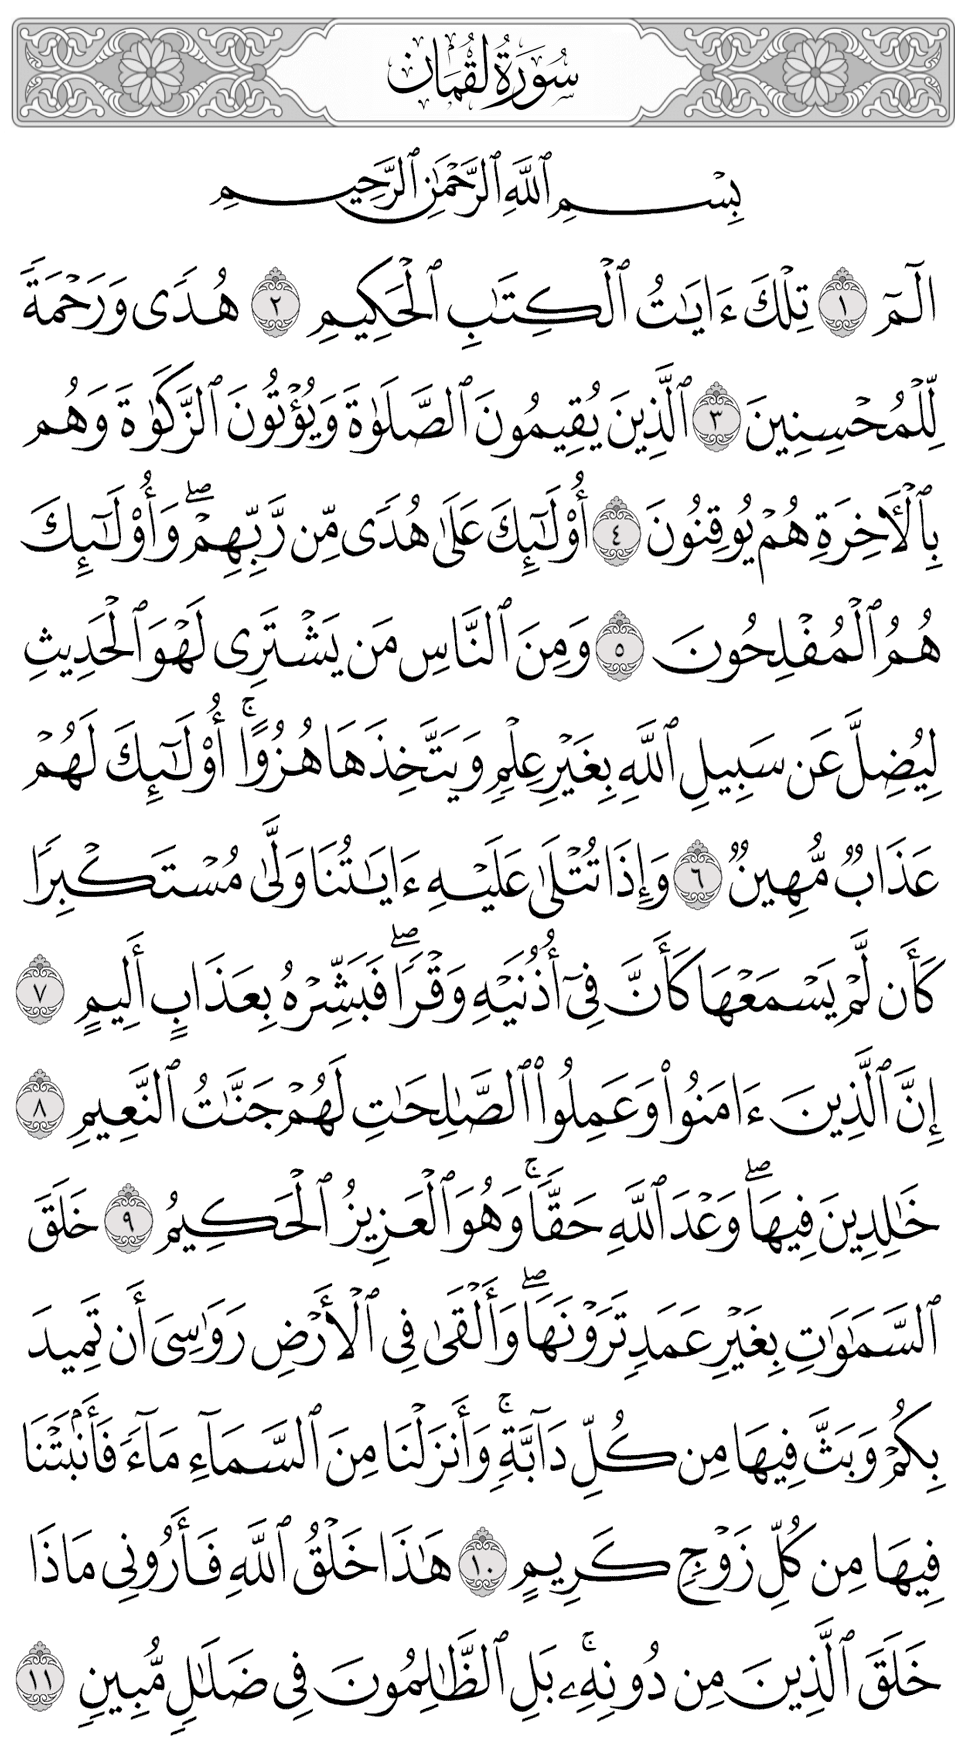 سُورَةُ لُقۡمَان
بِسۡمِ ٱللَّهِ ٱلرَّحۡمَٰنِ ٱلرَّحِيمِ
الٓمٓ ١ تِلۡكَ ءَايَٰتُ ٱلۡكِتَٰبِ ٱلۡحَكِيمِ ٢ هُدٗى وَرَحۡمَةٗ
لِّلۡمُحۡسِنِينَ ٣ ٱلَّذِينَ يُقِيمُونَ ٱلصَّلَوٰةَ وَيُؤۡتُونَ ٱلزَّكَوٰةَ وَهُم
بِٱلۡأٓخِرَةِ هُمۡ يُوقِنُونَ ٤ أُوْلَٰٓئِكَ عَلَىٰ هُدٗى مِّن رَّبِّهِمۡۖ وَأُوْلَٰٓئِكَ
هُمُ ٱلۡمُفۡلِحُونَ ٥ وَمِنَ ٱلنَّاسِ مَن يَشۡتَرِي لَهۡوَ ٱلۡحَدِيثِ
لِيُضِلَّ عَن سَبِيلِ ٱللَّهِ بِغَيۡرِ عِلۡمٖ وَيَتَّخِذَهَا هُزُوًاۚ أُوْلَٰٓئِكَ لَهُمۡ
عَذَابٞ مُّهِينٞ ٦ وَإِذَا تُتۡلَىٰ عَلَيۡهِ ءَايَٰتُنَا وَلَّىٰ مُسۡتَكۡبِرٗا
كَأَن لَّمۡ يَسۡمَعۡهَا كَأَنَّ فِيٓ أُذُنَيۡهِ وَقۡرٗاۖ فَبَشِّرۡهُ بِعَذَابٍ أَلِيمٍ ٧
إِنَّ ٱلَّذِينَ ءَامَنُواْ وَعَمِلُواْ ٱلصَّٰلِحَٰتِ لَهُمۡ جَنَّٰتُ ٱلنَّعِيمِ ٨
خَٰلِدِينَ فِيهَاۖ وَعۡدَ ٱللَّهِ حَقّٗاۚ وَهُوَ ٱلۡعَزِيزُ ٱلۡحَكِيمُ ٩ خَلَقَ
ٱلسَّمَٰوَٰتِ بِغَيۡرِ عَمَدٖ تَرَوۡنَهَاۖ وَأَلۡقَىٰ فِي ٱلۡأَرۡضِ رَوَٰسِيَ أَن تَمِيدَ
بِكُمۡ وَبَثَّ فِيهَا مِن كُلِّ دَآبَّةٖۚ وَأَنزَلۡنَا مِنَ ٱلسَّمَآءِ مَآءٗ فَأَنۢبَتۡنَا
فِيهَا مِن كُلِّ زَوۡجٖ كَرِيمٍ ١٠ هَٰذَا خَلۡقُ ٱللَّهِ فَأَرُونِي مَاذَا
خَلَقَ ٱلَّذِينَ مِن دُونِهِۦۚ بَلِ ٱلظَّٰلِمُونَ فِي ضَلَٰلٖ مُّبِينٖ ١١